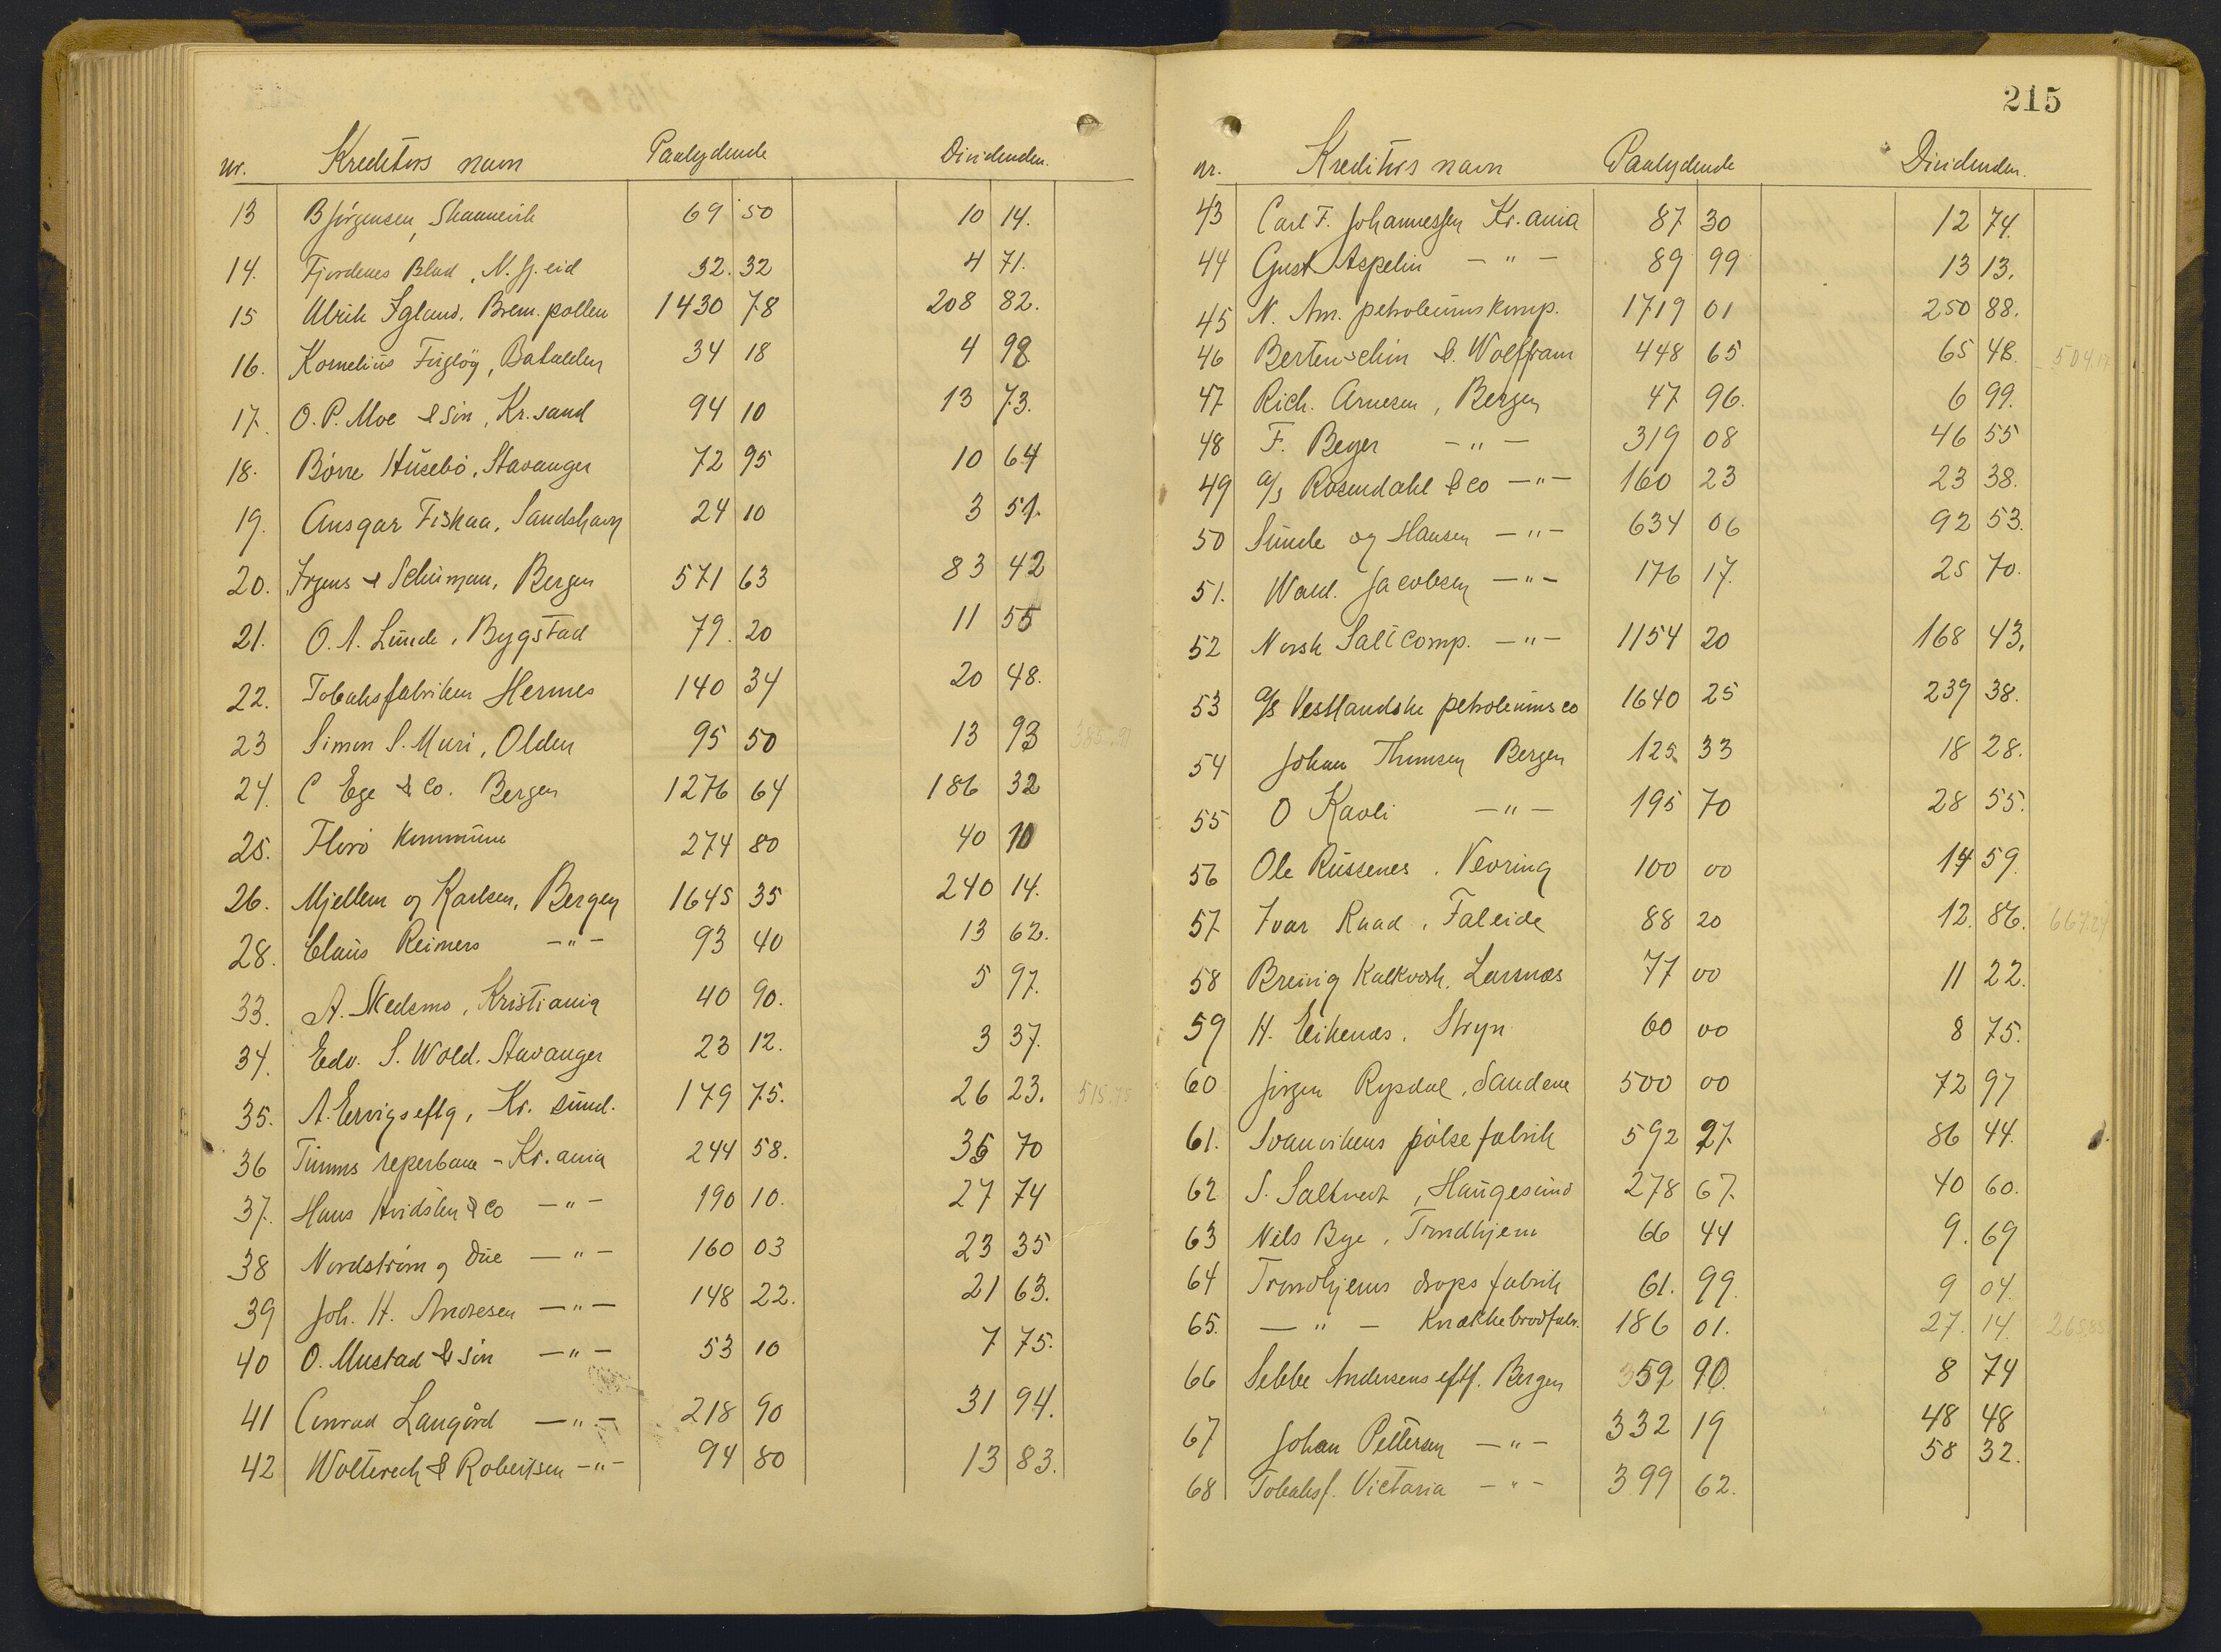 nr. Kreditors navn Paalydende Dividenden.
13 B Jörgensen, Skaanevik 69 50 10 14.
14. Fjordenes Blad, N. fj. eid 32. 32 4 71.
15 Ulrik Igland. Brem. pollen 1430 78 208 82.
16. Kornelius Fuglöy, Batalden 34 18 4 98
17. O. P. Moe & Sön, Kr. sand 94 10 13 73.
18. Börre Husebö, Stavanger 72 95 10 64
19. Ansgar Fiskaa, Sandshavn 24 10 3 51.
20. Irgens & Schuman, Bergen 571 63 83 42
21. O. A. Lunde, Bygstad 79. 20 11 55
22. Tobaksfabriken Hermes 140 34 20 48.
23 Simon S. Muri, Olden 95 50 13 93
24. C Ege & Co. Bergen 1276 64 186 32
25. Florö Kommune 274 80 40 10
26. Mjellem og Karlsen, Bergen 1645 35 240 14.
28. Claus Reimers -"- 93 40 13 62.
33. A. Skedsmo, Kristiania 40 90. 5 97.
34. Edv. S. Wold. Stavanger 23 12. 3 37.
35. A. Ervigs eftg, Kr. sund. 179 75. 26 23. 515.75
36 Timms reperbane - Kr. ania 244 58. 35 70
37. Hans Hvidsten & Co -"- 190 10. 27 74
38 Nordström & Due -"- 160 03 23 35
39 Joh. H. Andresen -"- 148 22. 21 63.
40 O. Mustad & Sön -"- 53 10 7 75.
41 Conrad Langård -"- 218 90 31 94.
42 Wolterech & Robertsen -"- 94 80 13 83.
215
nr. Kreditors navn Paalydende Dividenden.
43 Carl F. Johannessen Kr. ania 87 30 12 74.
44 Gust Aspelin -"- 89 99 13 13.
45 N. Am. petroleumskomp. 1719 01 250 88.
46 Berten-schin & Wolffram 448 65 65 48. 504.17
47 Rich. Arnesen, Bergen 47 96. 6 99.
48 F. Beyer -"- 319 08 46 55
49 a/s Rosendahl & Co -"- 160 23 23 38.
50 Sunde og Hansen -"- 634 06 92 53.
51. Wald. Jacobsen -"- 176 17. 25 70.
52 Norsk Saltcomp. -"- 1154 20 168 43.
53 a/s Vestlandske petroleums co 1640 25 239 38.
54 Johan Thomsen Bergen 125 33 18 28.
55 O Kavli -"- 195 70 28 55.
56 Ole Russenes. Vevring 100 00 14 59.
57 Ivar Raad. Faleide 88 20 12. 86. 667.24
58 Breivig Kalkverk. Larsnæs 77 00 11 22.
59 H. Eikenæs. Stryn 60 00 8 75.
60 Jörgen Rysdal, Sandene 500 00 72 97
61. Svanvikens pölsefabrik 592 27. 86 44.
62 S. Saltvedt, Haugesund 278 67. 40 60.
63 Nils Bye. Trondhjem 66 44 9. 69
64 Trondhjems drops fabrik 61. 99. 9 04.
65. -"- Knækkebrödfabr. 186 01. 27. 14. 265.85
66 Sebbe Andersens eftf. Bergen 59 90. 8 74
67 Johan Pettersen -"- 332 19 48 48
68 Tobaksf. Victoria -"- 399 62. 58 32.